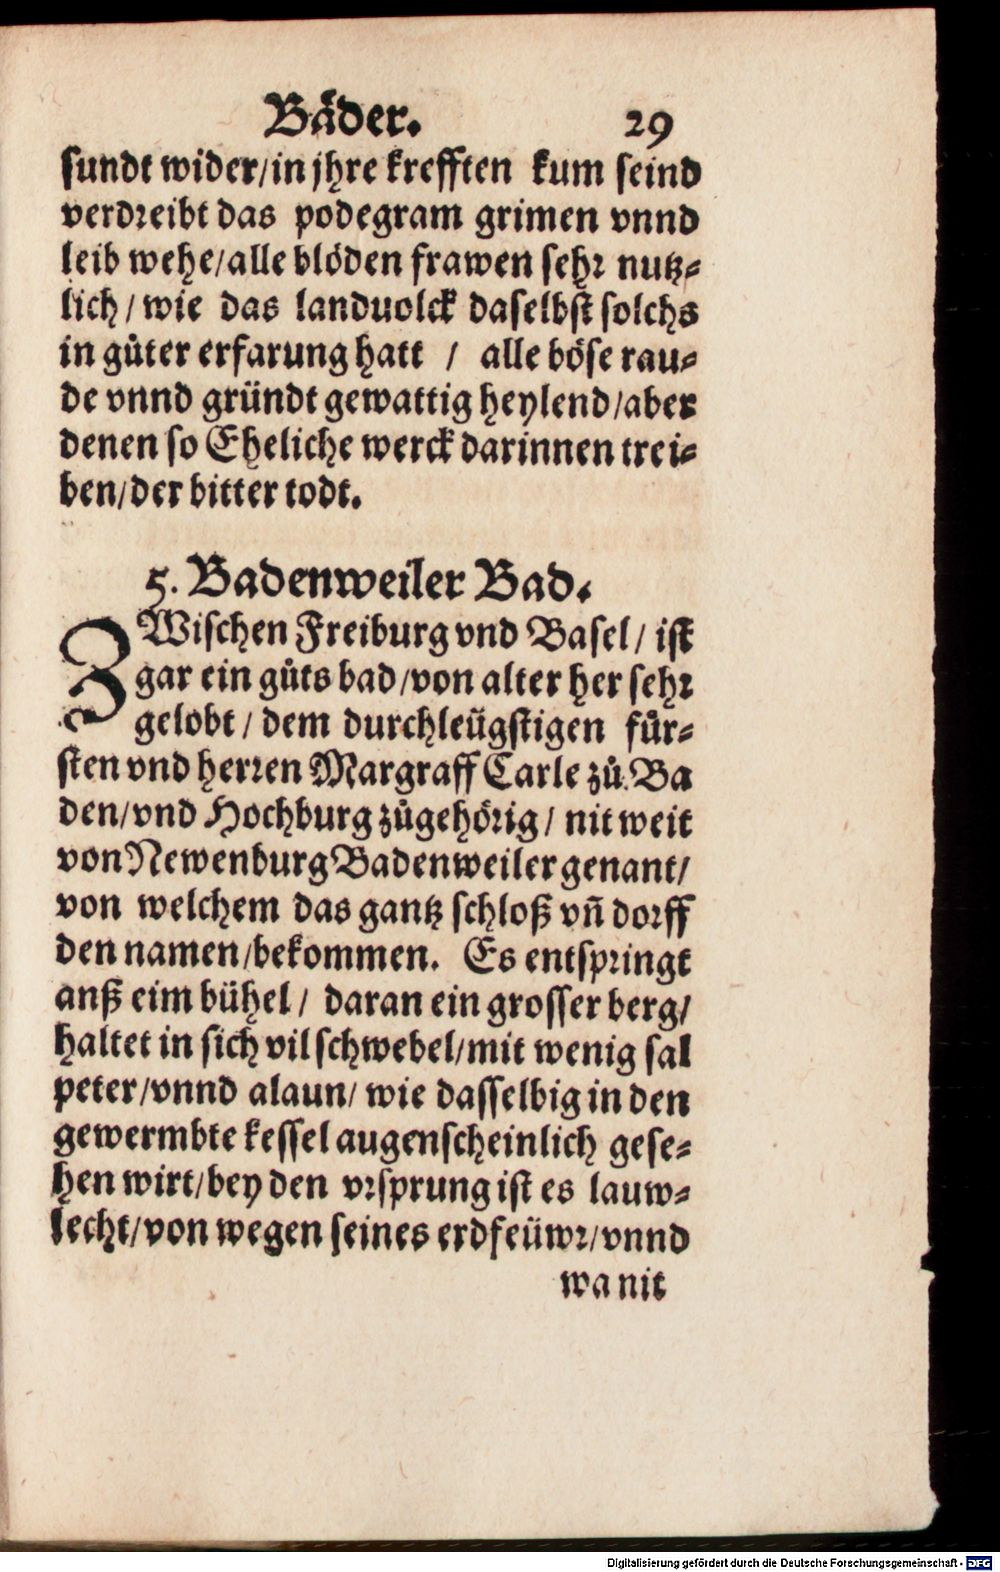 Bäder. 29
sundt wider/in jhre krefften kum seind
verdreibt das podegram grimen vnnd
leib wehe/alle blöden frawen sehr nutz-
lich/wie das landuolck daselbst solchs
in gůter erfarung hatt / alle böse rau-
de vnnd gründt gewattig heylend/aber
denen so Eheliche werck darinnen trei-
ben/der bitter todt.
5. Badenweiler Bad.
ZWischen Freiburg vnd Basel/ ist
gar ein gůts bad/von alter her sehr
gelobt/dem durchleügstigen für-
sten vnd herren Margraff Carle zů Ba
den/vnd Hochburg zůgehörig/ nit weit
von Newenburg Badenweiler genant/
von welchem das gantz schloß vñ dorff
den namen/bekommen. Es entspringt
anß eim bühel/ daran ein grosser berg/
haltet in sich vil schwebel/mit wenig sal
peter/vnnd alaun/ wie dasselbig in den
gewermbte kessel augenscheinlich gese-
hen wirt/bey den vrsprung ist es lauw-
lecht/von wegen seines erdfeüwr/vnnd
wa nit
Digitalisierung gefördert durch die Deutsche Forschungsgemeinschaft - DFG